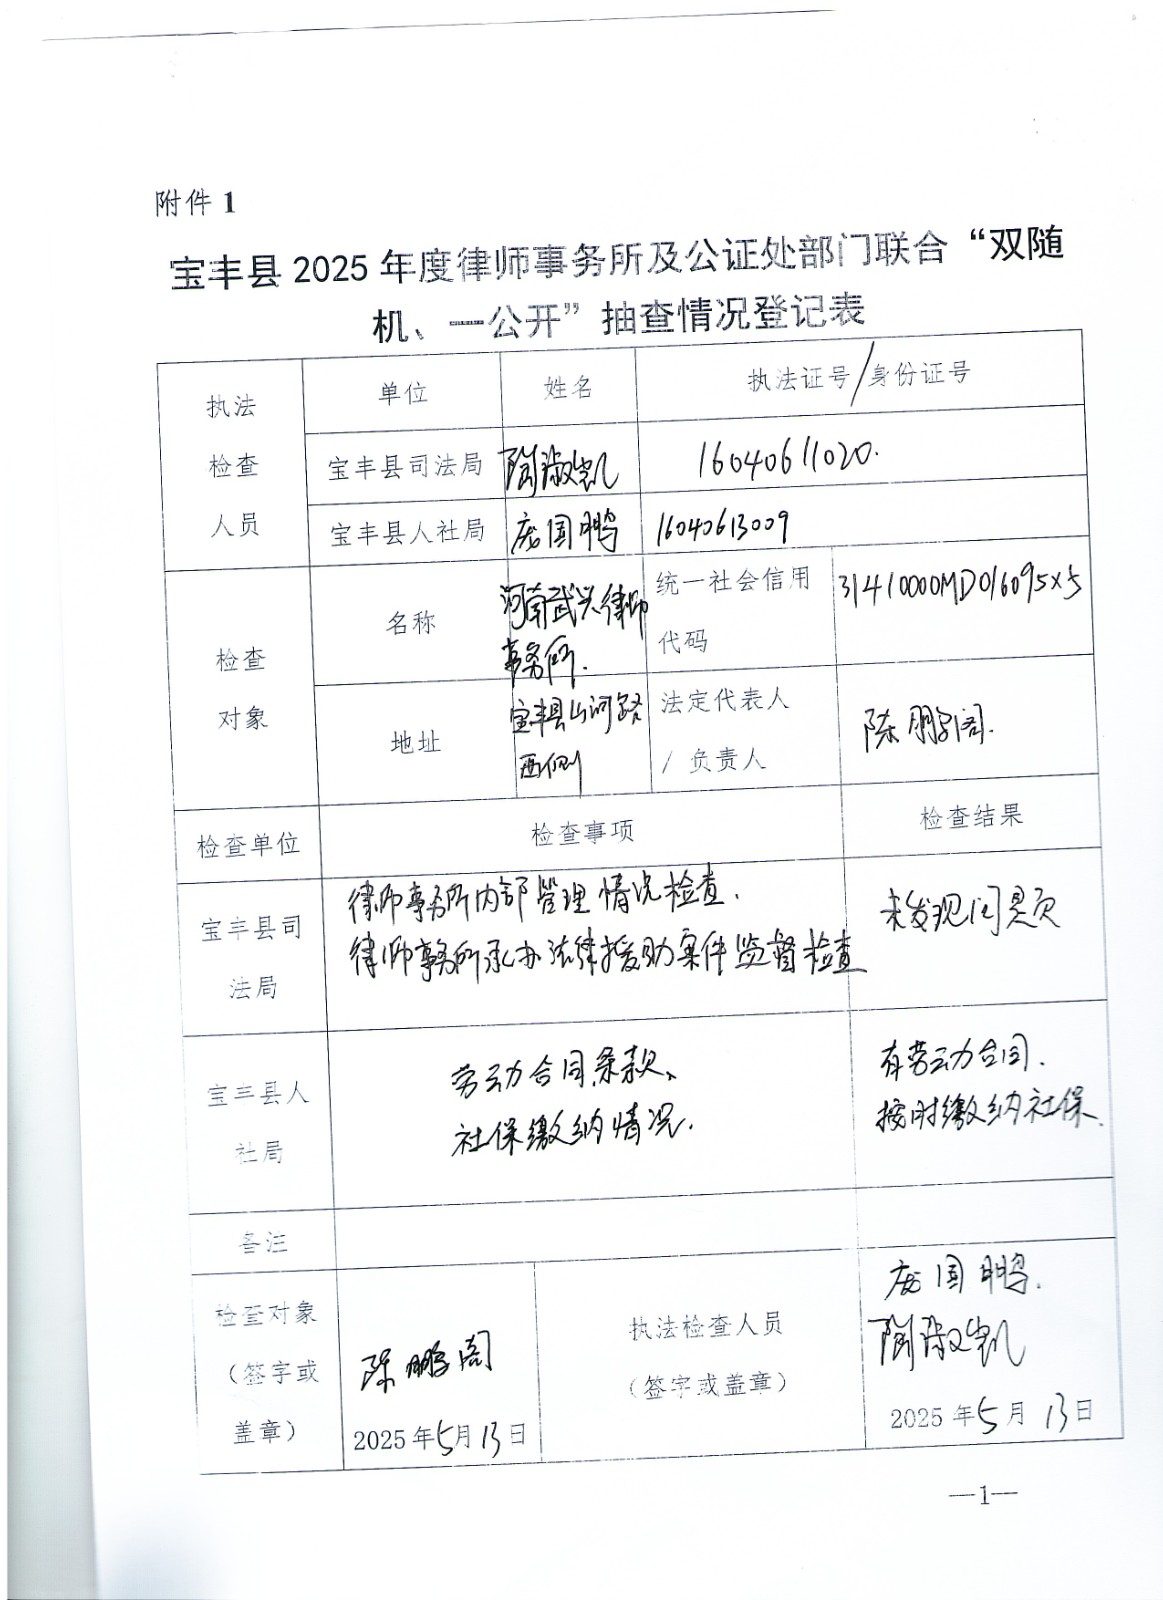 附件 1
宝丰县 2025 年度律师事务所及公证处部门联合“双随
机、一公开”抽查情况登记表
执法
检查
人员
单位
姓名
执法证号/身份证号
宝丰县司法局
陶淑凯
16040611020.
宝丰县人社局
庞国鹏
16040613009
检查
对象
名称
河南武兴律师
事务所.
统一社会信用
代码
31410000MD016095X5
地址
宝丰县山河路
西侧
法定代表人
/ 负责人
陈鹏阁.
检查单位
检查事项
检查结果
宝丰县司
法局
律师事务所内部管理情况检查.
律师事务所承办法律援助案件监督检查
未发现问题
宝丰县人
社局
劳动合同条款、
社保缴纳情况.
有劳动合同、
按时缴纳社保.
备注
检查对象
（签字或
盖章）
陈鹏阁
2025 年5月13日
执法检查人员
（签字或盖章）
庞国鹏.
陶淑凯
2025 年5月13日
—1—